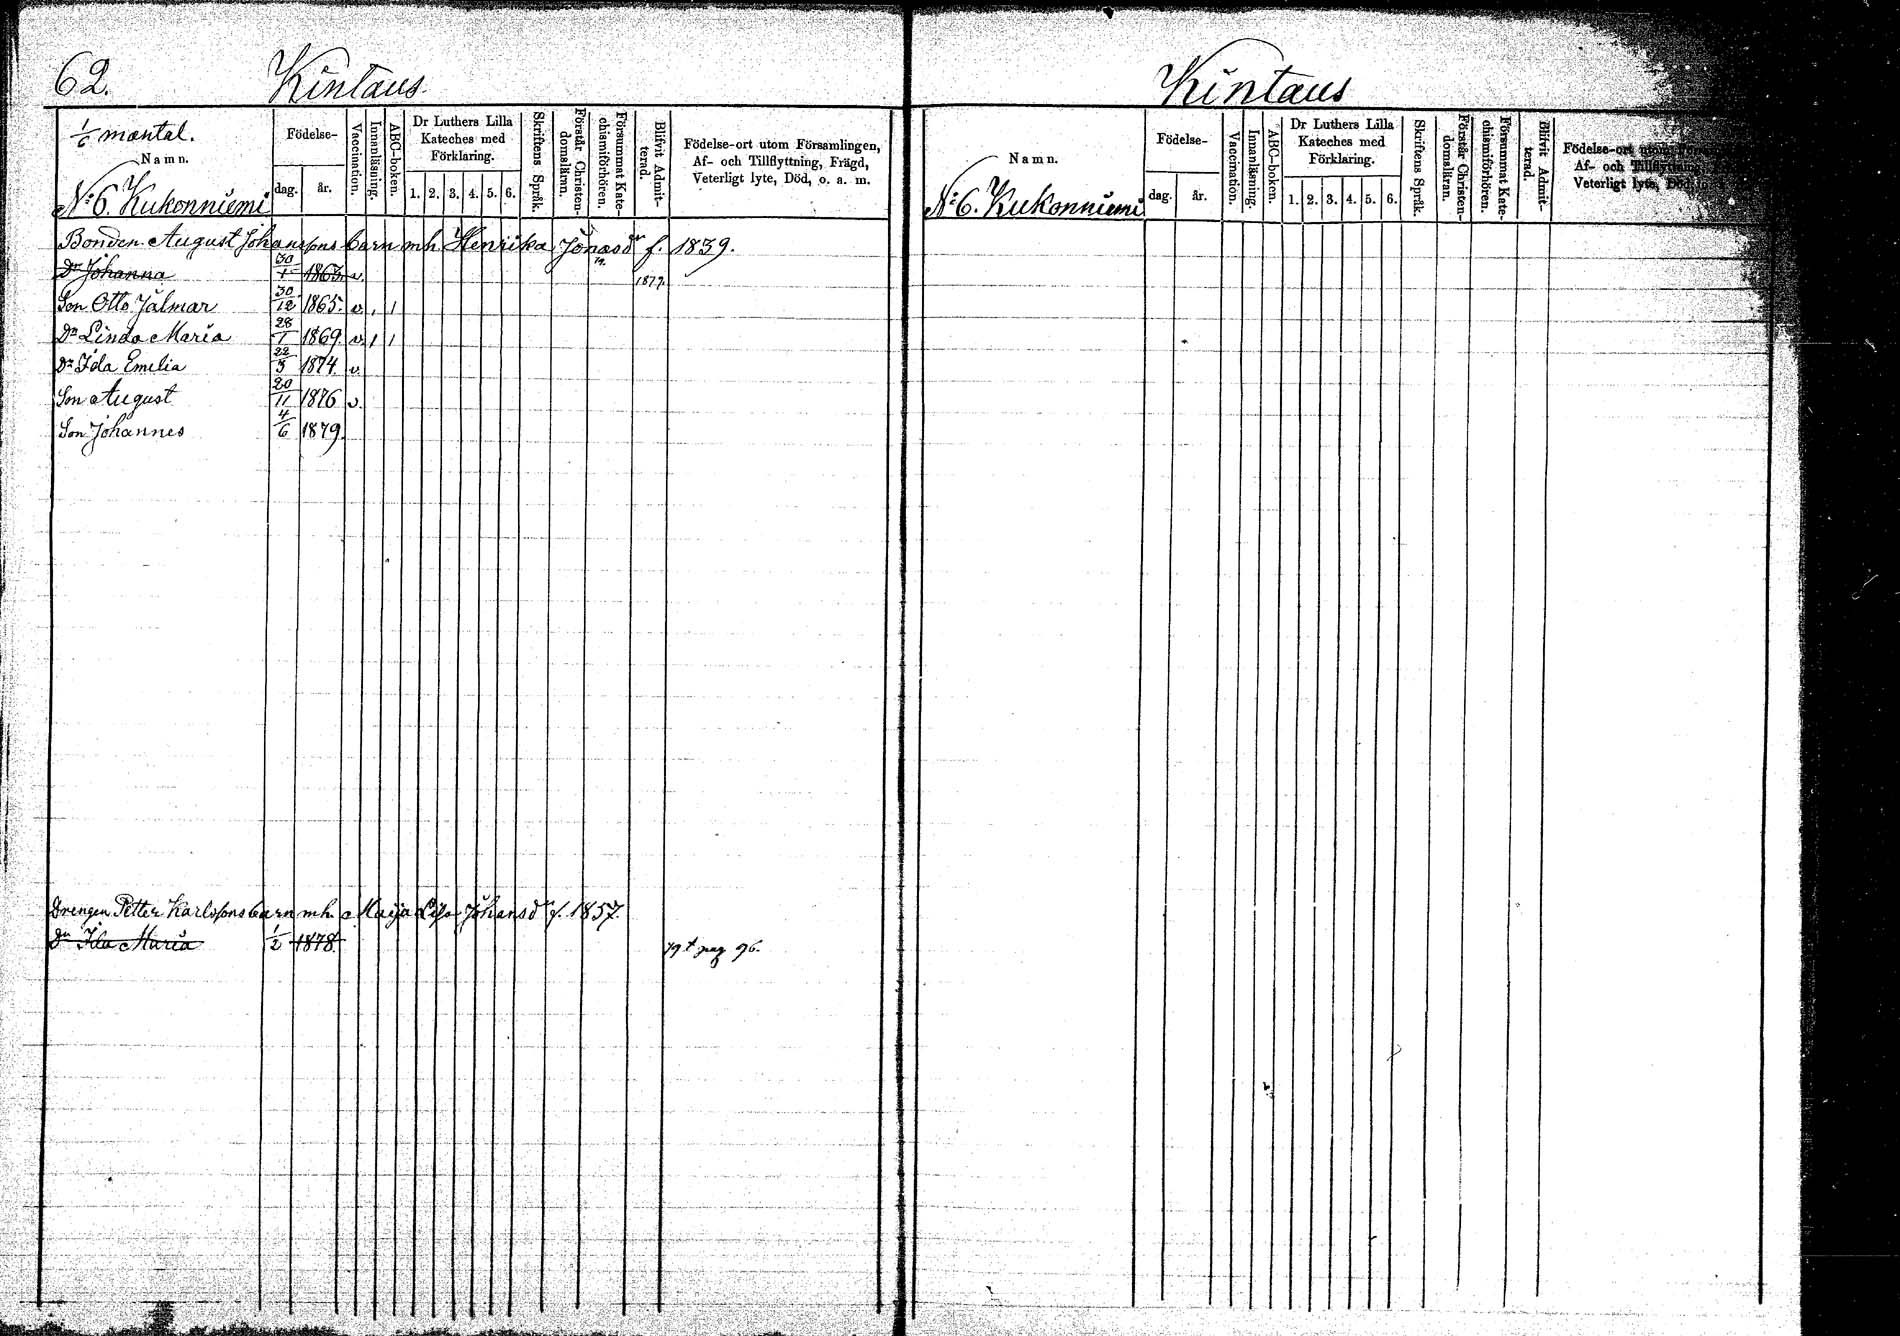 62. Kintaus.
1/6 mantal.
Namn.
Födelse-
dag. år.
Vaccination.
Innanläsning.
ABC-boken.
Dr Luthers Lilla Kateches med Förklaring.
1. 2. 3. 4. 5. 6.
Skriftens Språk.
Förstår Christendomslänn.
Försummat Katechismiförhören.
Blifvit Admitterad.
Födelse-ort utom Församlingen,
Af- och Tillflyttning, Frägd,
Veterligt lyte, Död, o. a. m.
N:o 6. Kukonniemi
Bonden August Johanssons barn m.h. Henrika Jonasdr f. 1839.
Dr Johanna 30/1 1863. v. 1879.
Son Otto Jalmar 30/12 1865. v. 1 1
Dr Linda Maria 28/1 1869 v. 1 1
Dr Ida Emilia 22/3 1874. v.
Son August 20/11 1876 v.
Son Johannes 4/6 1879.
Drengen Petter Karlssons barn m.h. Maija Lisa Johansdr f. 1857.
Dr Ida Maria 1/2 1878. 79 t pag 96.
Kintaus
Namn.
Födelse-
dag. år.
Vaccination.
Innanläsning.
ABC-boken.
Dr Luthers Lilla Kateches med Förklaring.
1. 2. 3. 4. 5. 6.
Skriftens Språk.
Förstår Christendomslkran.
Försummat Katechismiförhören.
Blifvit Admitterad.
Födelse-ort utom
Af- och Tillflyttning,
Veterligt lyte, Död,
N:o 6. Kukonniemi